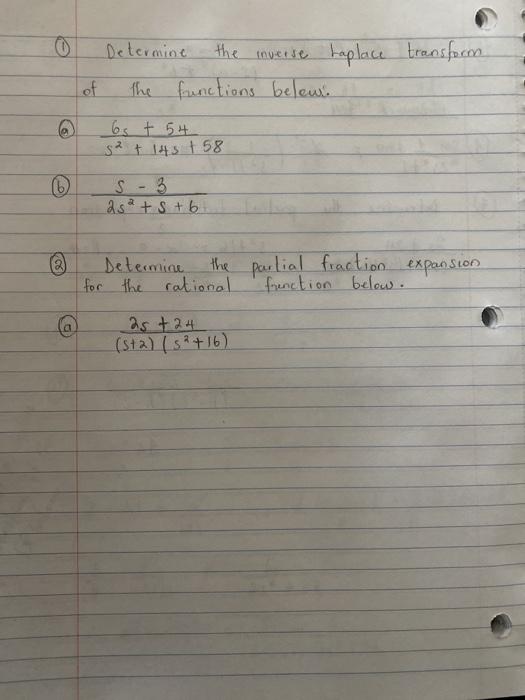 ① Determine the inverse Laplace transform
of the functions below.
ⓐ 6s + 54
s² + 14s + 58
ⓑ s - 3
2s² + s + 6
② Determine the partial fraction expansion
for the rational function below.
ⓐ 2s + 24
(s+2) (s²+16)